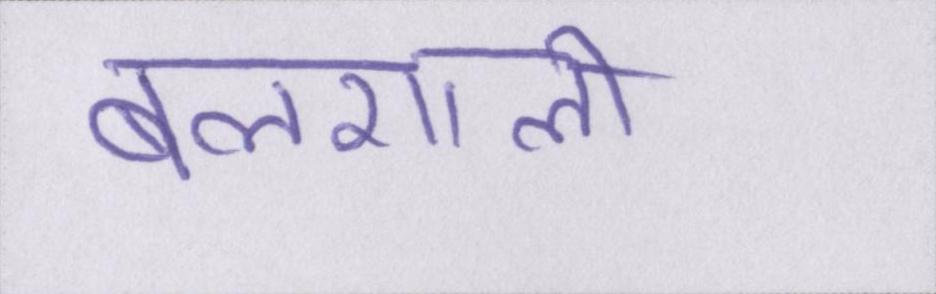 बलशाली